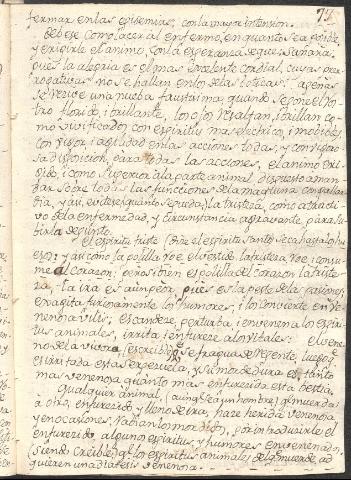 77
fermar en las epidemias, con la mayor intension.
debese consolacer al enfermo, en quanto sea posible
y erigirle el animo, con la esperanza de que sanara.
pues la alegria es el mas excelente cordial, cuyas pre-
rogativas no se hallan en los de las boticas: apenas
se recive una nueva faustaima, quando se pone el ros-
tro florido, i brillante, los ojos resaltan, i brillan co-
mo vivificados con espiritus mas electricos, i
con vigor i agilidad en las acciones todas, y con vigoro-
sa disposicion, para todas las acciones, el animo eri-
gido, i como superior ala parte animal, dispuesto a man-
dar sobre todas las funciones dela maquina con gallar-
dia, y asi, evitese (quanto se pueda) la tristeza, como atracti-
vo dela enfermedad, y circunstancia agravante para su-
birla de punto.
El espiritu triste (dice el espiritu santo) seca hasta los hu-
esos: y asi como la polilla roe el vestido, la tristeza roe i consu-
me al corazon; pero si bien es polilla del corazon la triste-
za, la ira es aun peor, pues es la peste delas pasiones;
exagita furiosamente los humores, i los convierte en ve-
nenosa vilis; escandeze, perturba, i envenena los espiri-
tus animales, irrita, i enfureze alos vitales: el vene-
no dela vivora (escribe) se fragua de repente, luego q.
es irritada esta serpezuela, y su mordedura es, tanto
mas venenosa quanto mas enfurezida esta bestia.
Qualquier animal, (aunq. sea un hombre) q. muerda
a otro, enfurezido y lleno de ira, haze herida venenosa
y en ocasiones, rabian los mordidos, por introducirle el
enfurezido algunos espiritus, y humores envenenados,
(siendo creible) q. los espiritus animales del q. muerde, ad
quieren una diatesis venenosa.